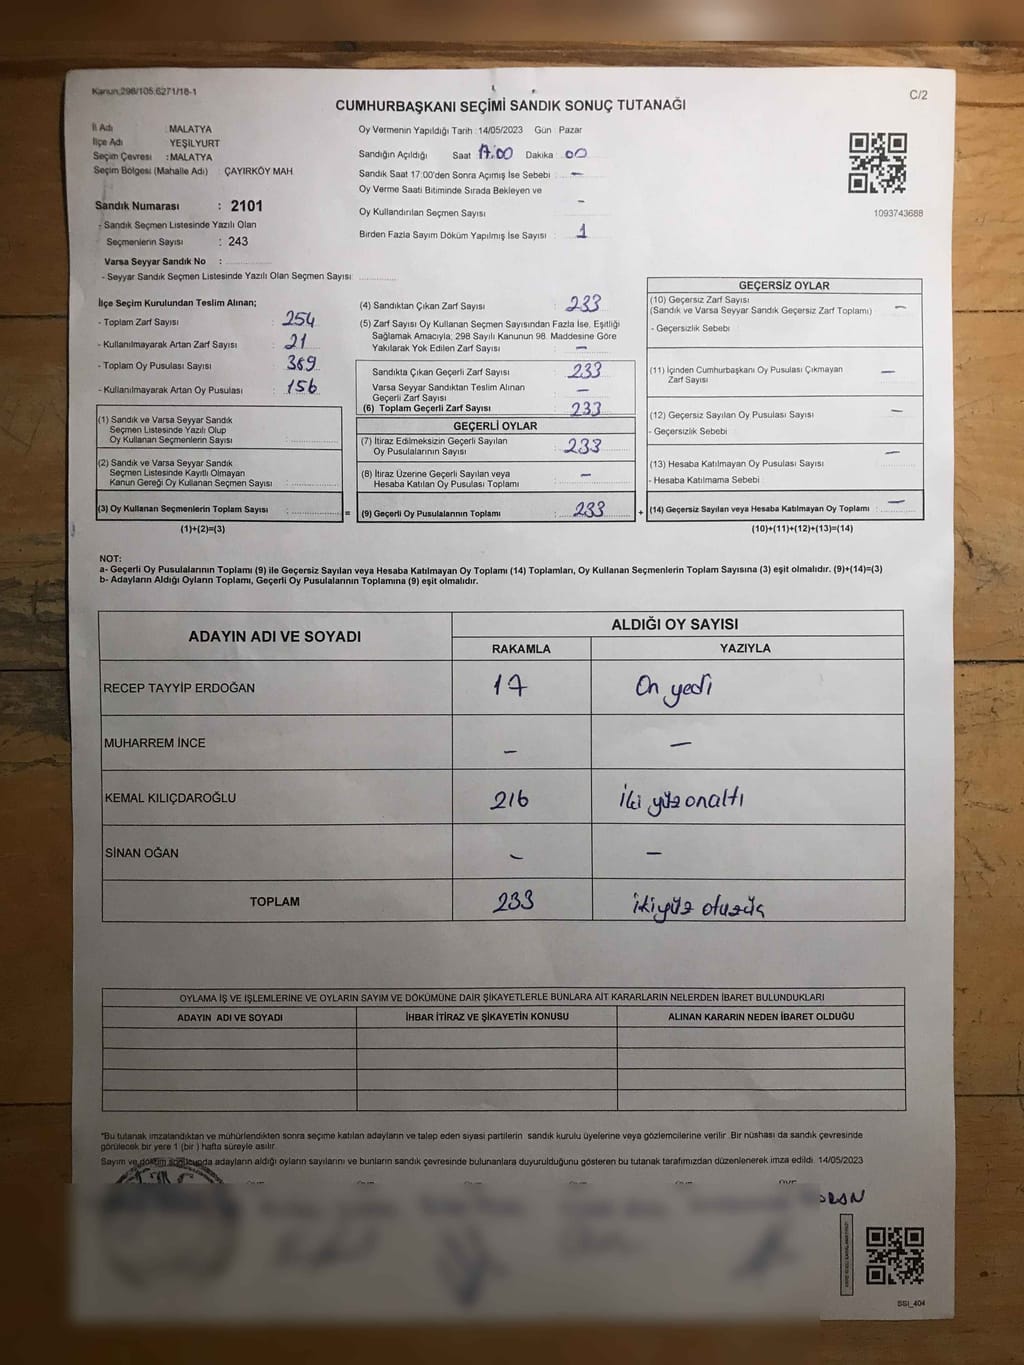 Kanun.298/105.6271/18-1
C/2
CUMHURBAŞKANI SEÇİMİ SANDIK SONUÇ TUTANAĞI
İl Adı : MALATYA
İlçe Adı YEŞİLYURT
Seçim Çevresi : MALATYA
Seçim Bölgesi (Mahalle Adı) : ÇAYIRKÖY MAH
Sandık Numarası : 2101
- Sandık Seçmen Listesinde Yazılı Olan
Seçmenlerin Sayısı : 243
Varsa Seyyar Sandık No :
- Seyyar Sandık Seçmen Listesinde Yazılı Olan Seçmen Sayısı:
Oy Vermenin Yapıldığı Tarih : 14/05/2023 Gün Pazar
Sandığın Açıldığı Saat 17:00 Dakika : 00
Sandık Saat 17:00'den Sonra Açımış İse Sebebi : –
Oy Verme Saati Bitiminde Sırada Bekleyen ve
Oy Kullandırılan Seçmen Sayısı –
Birden Fazla Sayım Döküm Yapılmış İse Sayısı : 1
1093743688
İlçe Seçim Kurulundan Teslim Alınan;
- Toplam Zarf Sayısı : 254
- Kullanılmayarak Artan Zarf Sayısı : 21
- Toplam Oy Pusulası Sayısı : 389
- Kullanılmayarak Artan Oy Pusulası : 156
(1) Sandık ve Varsa Seyyar Sandık
Seçmen Listesinde Yazılı Olup
Oy Kullanan Seçmenlerin Sayısı :
(2) Sandık ve Varsa Seyyar Sandık
Seçmen Listesinde Kayıtlı Olmayan
Kanun Gereği Oy Kullanan Seçmen Sayısı :
(3) Oy Kullanan Seçmenlerin Toplam Sayısı : =
(1)+(2)=(3)
(4) Sandıktan Çıkan Zarf Sayısı : 233
(5) Zarf Sayısı Oy Kullanan Seçmen Sayısından Fazla İse, Eşitliği
Sağlamak Amacıyla; 298 Sayılı Kanunun 98. Maddesine Göre
Yakılarak Yok Edilen Zarf Sayısı : –
Sandıkta Çıkan Geçerli Zarf Sayısı : 233
Varsa Seyyar Sandıktan Teslim Alınan
Geçerli Zarf Sayısı : –
(6) Toplam Geçerli Zarf Sayısı : 233
GEÇERLİ OYLAR
(7) İtiraz Edilmeksizin Geçerli Sayılan
Oy Pusulalarının Sayısı : 233
(8) İtiraz Üzerine Geçerli Sayılan veya
Hesaba Katılan Oy Pusulası Toplamı : –
(9) Geçerli Oy Pusulalarının Toplamı : 233 +
GEÇERSİZ OYLAR
(10) Geçersiz Zarf Sayısı
(Sandık ve Varsa Seyyar Sandık Geçersiz Zarf Toplamı) : –
- Geçersizlik Sebebi
(11) İçinden Cumhurbaşkanı Oy Pusulası Çıkmayan
Zarf Sayısı –
(12) Geçersiz Sayılan Oy Pusulası Sayısı : –
- Geçersizlik Sebebi
(13) Hesaba Katılmayan Oy Pusulası Sayısı : –
- Hesaba Katılmama Sebebi
(14) Geçersiz Sayılan veya Hesaba Katılmayan Oy Toplamı : –
(10)+(11)+(12)+(13)=(14)
NOT:
a- Geçerli Oy Pusulalarının Toplamı (9) ile Geçersiz Sayılan veya Hesaba Katılmayan Oy Toplamı (14) Toplamları, Oy Kullanan Seçmenlerin Toplam Sayısına (3) eşit olmalıdır. (9)+(14)=(3)
b- Adayların Aldığı Oyların Toplamı, Geçerli Oy Pusulalarının Toplamına (9) eşit olmalıdır.
ADAYIN ADI VE SOYADI ALDIĞI OY SAYISI
RAKAMLA YAZIYLA
RECEP TAYYİP ERDOĞAN 17 On yedi
MUHARREM İNCE – –
KEMAL KILIÇDAROĞLU 216 İki yüz onaltı
SİNAN OĞAN – –
TOPLAM 233 ikiyüz otuzüç
OYLAMA İŞ VE İŞLEMLERİNE VE OYLARIN SAYIM VE DÖKÜMÜNE DAİR ŞİKAYETLERLE BUNLARA AİT KARARLARIN NELERDEN İBARET BULUNDUKLARI
ADAYIN ADI VE SOYADI İHBAR İTİRAZ VE ŞİKAYETİN KONUSU ALINAN KARARIN NEDEN İBARET OLDUĞU
*Bu tutanak imzalandıktan ve mühürlendikten sonra seçime katılan adayların ve talep eden siyasi partilerin sandık kurulu üyelerine veya gözlemcilerine verilir. Bir nüshası da sandık çevresinde
görülecek bir yere 1 (bir ) hafta süreyle asılır.
Sayım ve döküm sonucunda adayların aldığı oyların sayılarını ve bunların sandık çevresinde bulunanlara duyurulduğunu gösteren bu tutanak tarafımızdan düzenlenerek imza edildi. 14/05/2023
SSI_404